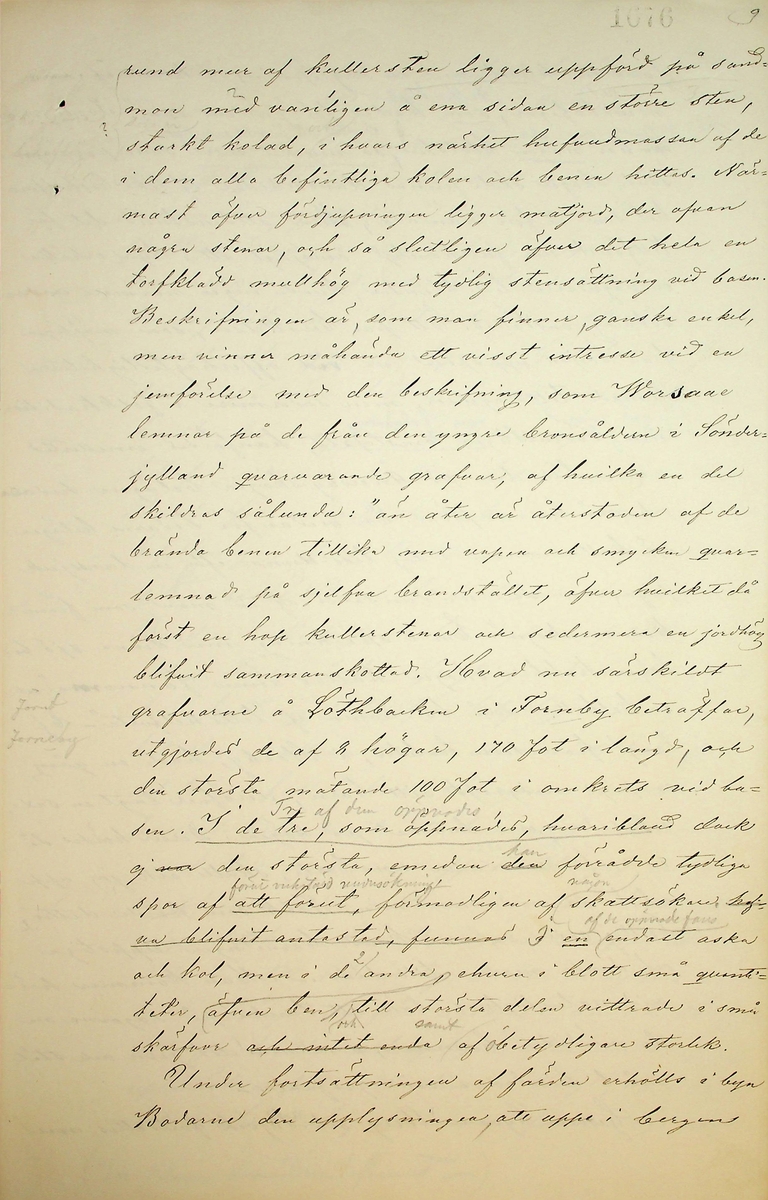 1676 9
rund mur af kullersten ligger uppförd på sand-
mon med vanligen å ena sidan en större sten,
?
starkt kolad, i hvars närhet hufvudmassan af de
i dem alla befintliga kolen och benen hittas. När-
mast öfver fördjupningen ligger matjord, der ofvan
några stenar, och så slutligen öfver det hela en
torfklädd mullhög med tydlig stensättning vid basen.
Beskrifningen är, som man finner, ganska enkel,
men vinner måhända ett visst intresse vid en
jemförelse med den beskrifning, som Worsaae
lemnar på de från den yngre bronsåldern i Sönder-
jylland qvarvarande grafvar, af hvilka en del
skildras sålunda: "än åter är återstoden af de
brända benen tillika med vapen och smycken qvar-
lemnad på sjelfva brandstället, öfver hvilket då
först en hop kullerstenar och sedermera en jordhög
blifvit sammanskottad. Hvad nu särskildt
grafvarne å Löthbacken i Forneby beträffar,
Forneby
utgjordes de af 8 högar, 170 fot i längd, och
den största mätande 100 fot i omkrets vid ba-
Tre af dem öppnades
sen. I de tre, som öppnades, hvaribland dock
han
ej var den största, emedan den förrådde tydliga
förut undersökning någon
spor af att förut, förmodligen af skattsökare, haf-
af de öppnade fans
va blifvit antastad, funnos I en endast aska
och kol, men i de andra, ehuru i blott små quanti-
teter, äfven ben, till största delen vittrade i små
och samt
skärfvor och intet enda af obetydligare storlek.
Under fortsättningen af färden erhölls i byn
Bodarne den upplysningen, att uppe i bergens